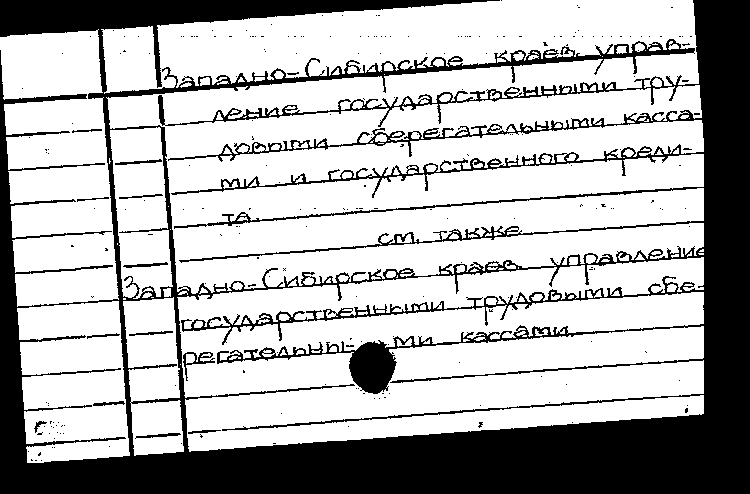 Западно-Сибирское краев. управ-
ление государственными тру-
довыми сберегательными касса-
ми и государственного креди-
та.
см. также
Западно-Сибирское краев. управление
государственными трудовыми сбе-
регательны- ми кассами.